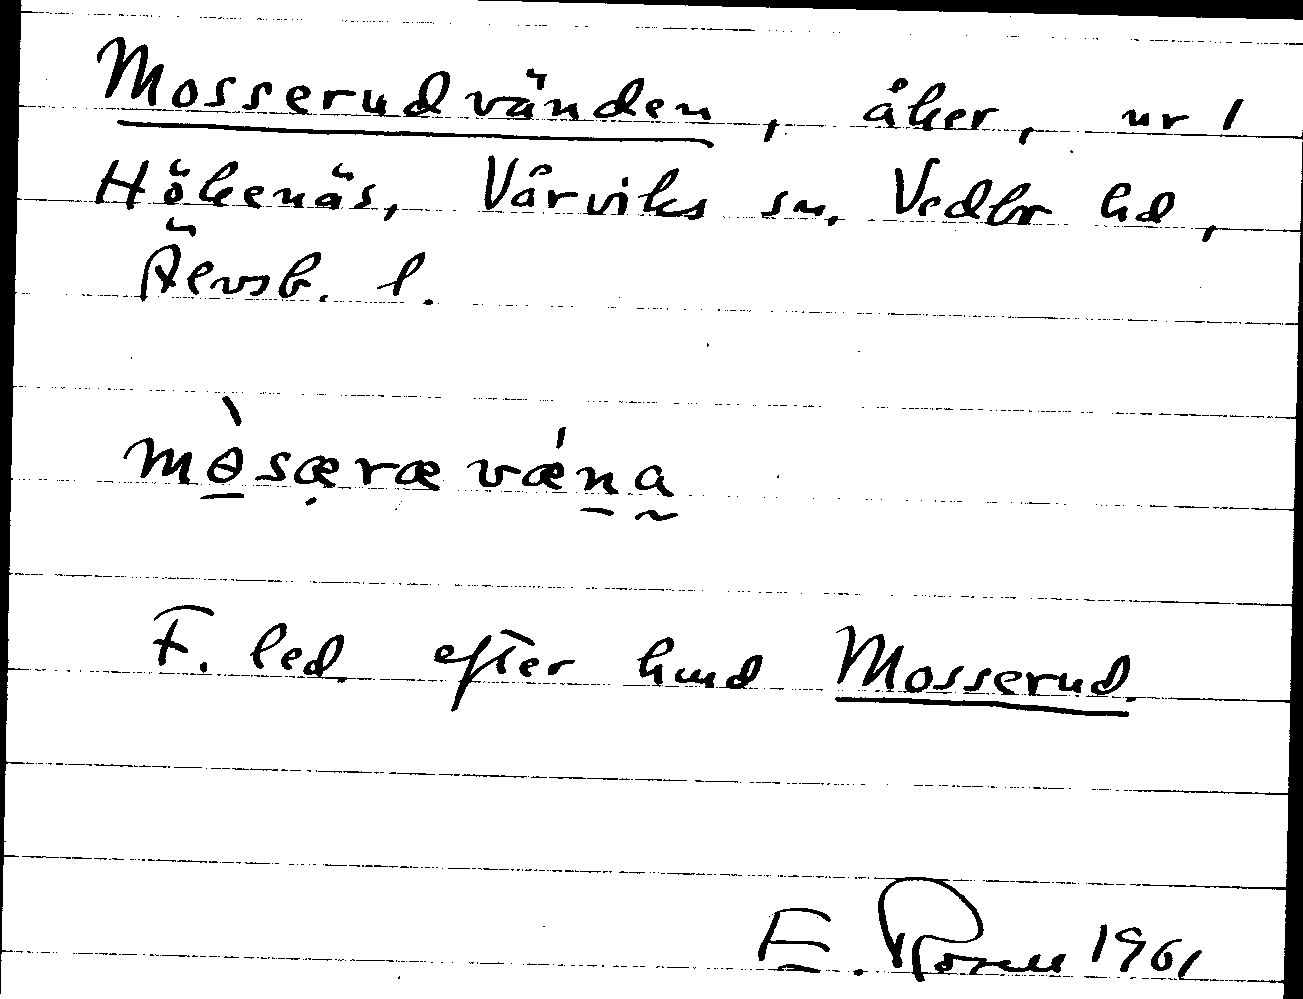 Mosserudvänden, åker, nr 1
Hökenäs, Vårviks sn. Vedbr hd,
Älvsb. l.
mòsæræ vǽna
F. led. efter hmd Mosserud.
E. Rosell 1961